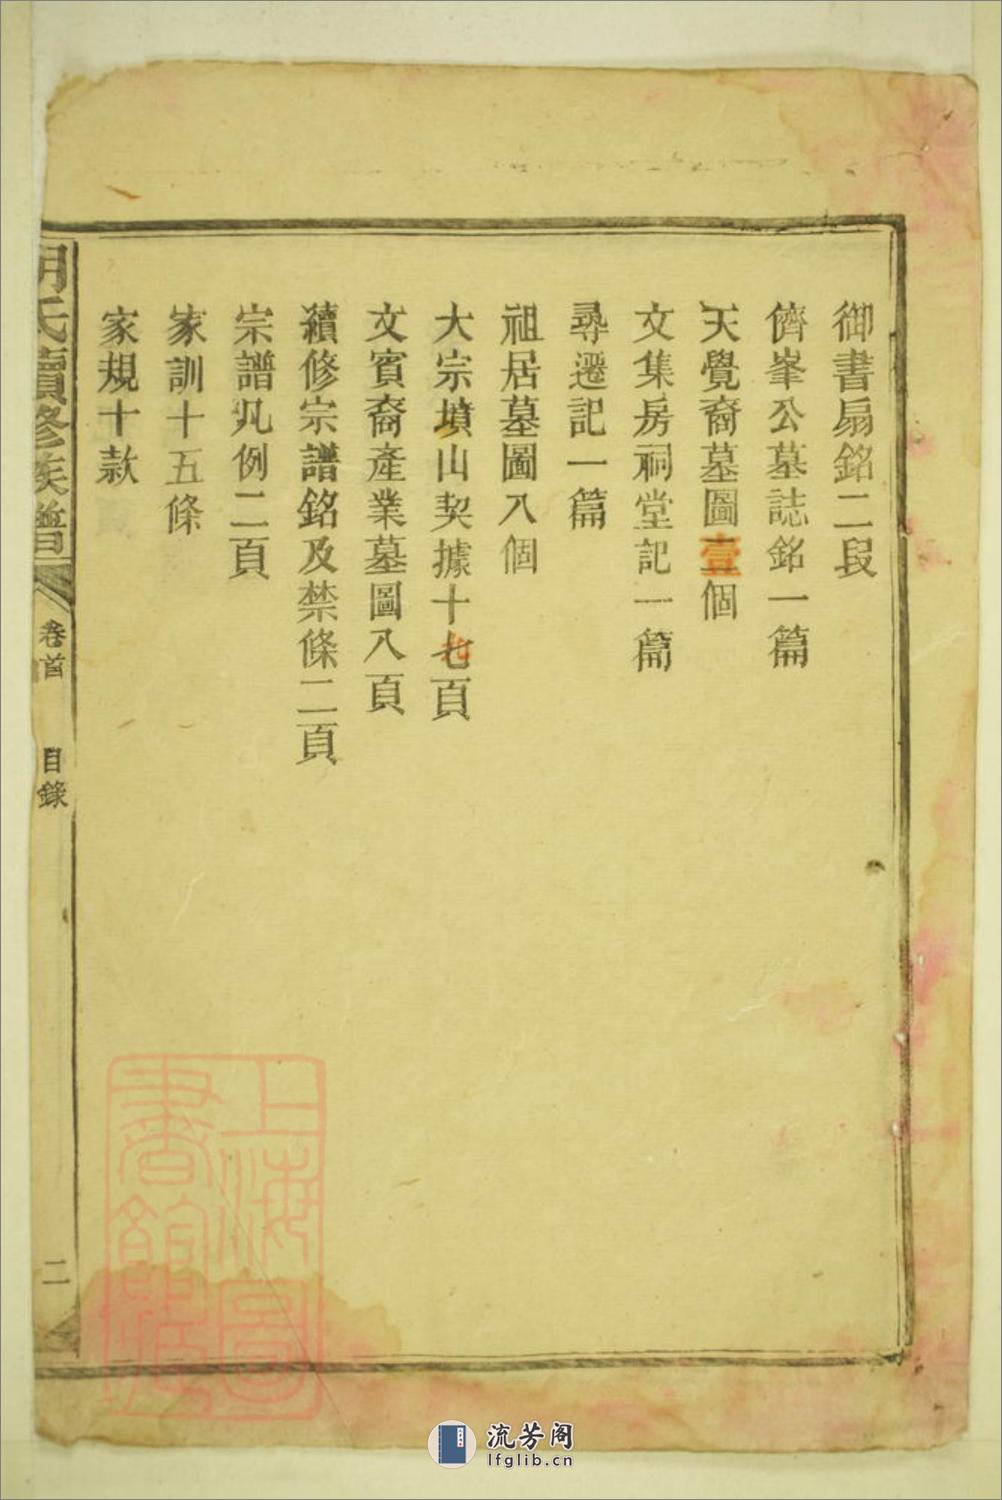 御書扇銘二段
儕峯公墓誌銘一篇
天覺裔墓圖壹個
文集房祠堂記一篇
尋遷記一篇
祖居墓圖八個
大宗墳山契據十七頁
文賓裔產業墓圖八頁
續修宗譜銘及禁條二頁
宗譜凡例二頁
家訓十五條
家規十款
氏續修族譜
卷首
目錄
二
上海圖書館藏
流芳阁
lfglib.cn